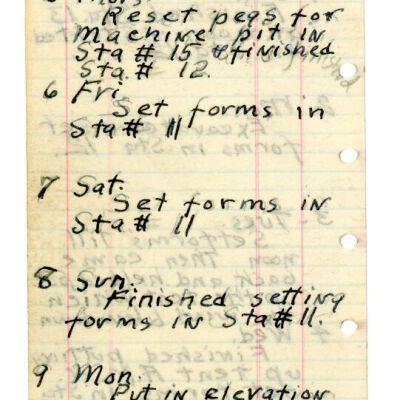 Thurs.
Reset pegs for
Machine pit in
Sta# 15 & finished
Sta.# 12.
6 Fri.
Set forms in
Sta# 11
7 Sat.
Set forms in
Sta# 11
8 Sun.
Finished setting
forms in Sta#11.
9 Mon.
Put in elevation